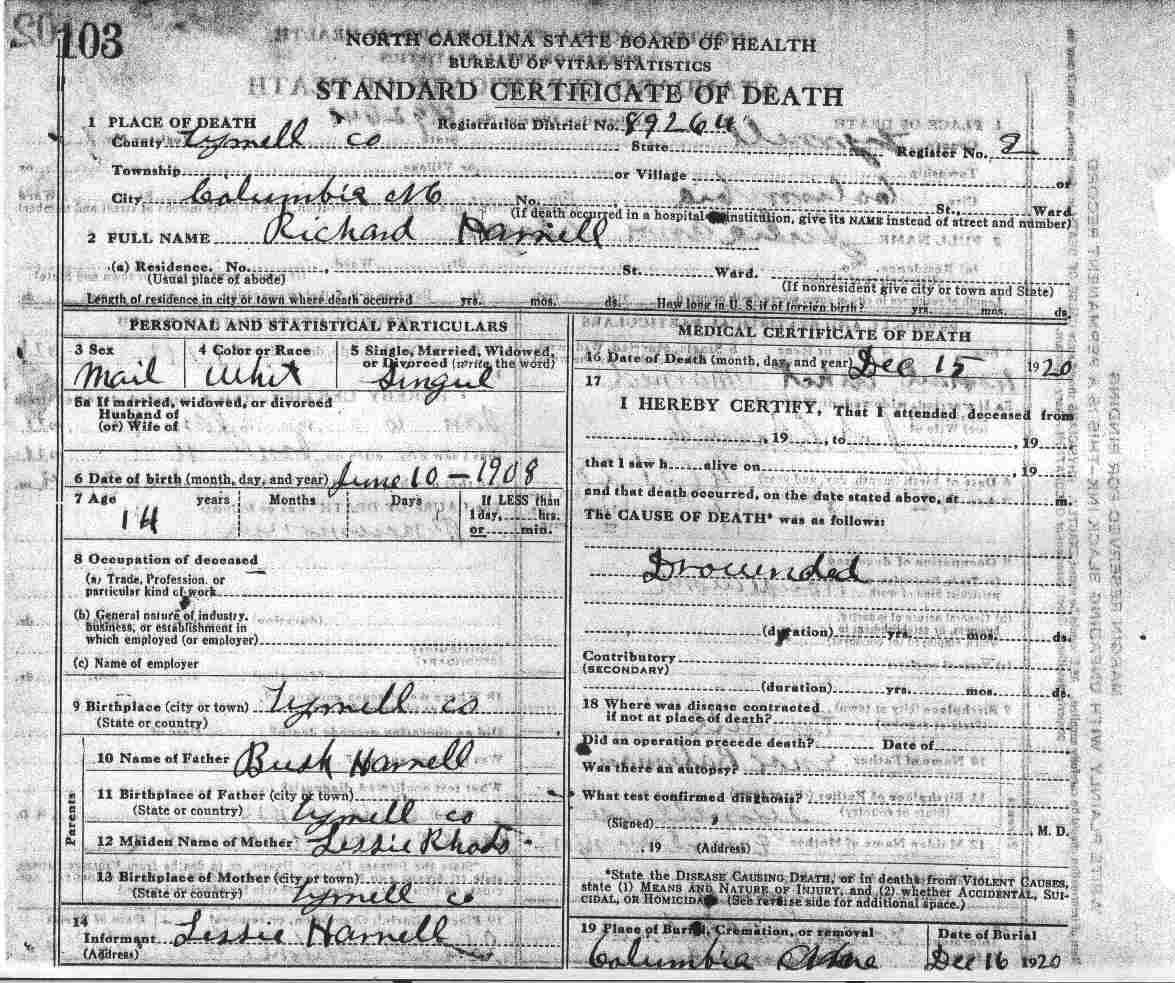 103
NORTH CAROLINA STATE BOARD OF HEALTH
BUREAU OF VITAL STATISTICS
STANDARD CERTIFICATE OF DEATH
1 PLACE OF DEATH Registration District No. 89264
County Tyrrell Co State Register No. 8
Township or Village or
City Columbia NC No. St., Ward
(if death occurred in a hospital institution, give its NAME instead of street and number)
2 FULL NAME Richard Harnell
(a) Residence. No. , St. Ward.
(Usual place of abode) (If nonresident give city or town and State)
Length of residence in city or town where death occurred yrs. mos. ds. How long in U. S. if of foreign birth? yrs. mos. ds.
PERSONAL AND STATISTICAL PARTICULARS
3 Sex 4 Color or Race 5 Single, Married, Widowed,
or Divorced (write the word)
Mail Whit Singul
5a If married, widowed, or divorced
Husband of
(or) Wife of
6 Date of birth (month, day, and year) June 10 - 1908
7 Age years Months Days If LESS than
1 day, hrs.
14 or min.
8 Occupation of deceased
(a) Trade, Profession, or
particular kind of work
(b) General nature of industry,
business, or establishment in
which employed (or employer)
(c) Name of employer
9 Birthplace (city or town) Tyrrell Co
(State or country)
Parents
10 Name of Father Bush Harnell
11 Birthplace of Father (city or town)
(State or country) Tyrrell co
12 Maiden Name of Mother Lessie Rhods
13 Birthplace of Mother (city or town)
(State or country) Tyrrell co
14
Informant Lessie Harnell
(Address)
MEDICAL CERTIFICATE OF DEATH
16 Date of Death (month, day, and year) Dec 15 1920
17
I HEREBY CERTIFY, That I attended deceased from
, 19 , to , 19
that I saw h alive on , 19
and that death occurred, on the date stated above, at m.
The CAUSE OF DEATH* was as follows:
Drownded
(duration) yrs. mos. ds.
Contributory
(SECONDARY)
(duration) yrs. mos. ds.
18 Where was disease contracted
if not at place of death?
Did an operation precede death? Date of
Was there an autopsy?
What test confirmed diagnosis?
(Signed) , M. D.
, 19 (Address)
*State the DISEASE CAUSING DEATH, or in deaths from VIOLENT CAUSES,
state (1) MEANS AND NATURE OF INJURY, and (2) whether ACCIDENTAL, SUI-
CIDAL, OR HOMICIDAL (See reverse side for additional space.)
19 Place of Burial, Cremation, or removal Date of Burial
Columbia Dec 16 1920